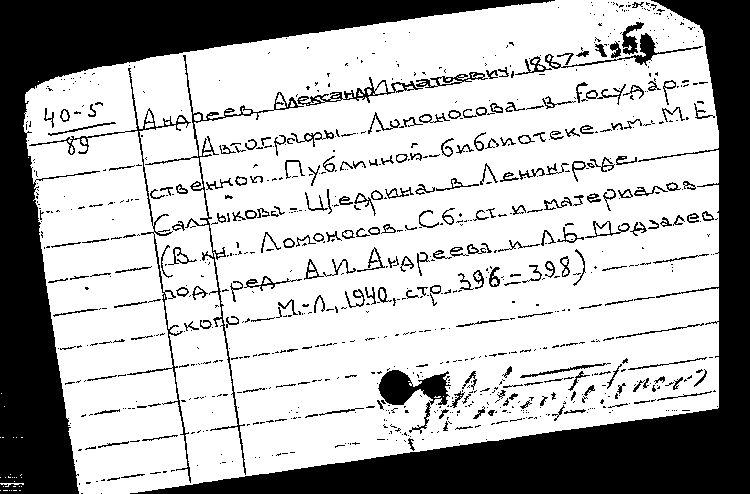 40-5
89
Андреев, Александр Игнатьевич, 1887-1959
Автографы Ломоносова в Государ-
ственной Публичной библиотеке им. М.Е
Салтыкова-Щедрина в Ленинграде.
(В кн.: Ломоносов. Сб. ст. и материалов
под ред. А.И. Андреева и Л.Б. Модзалев-
ского. М.-Л., 1940, стр. 396-398)